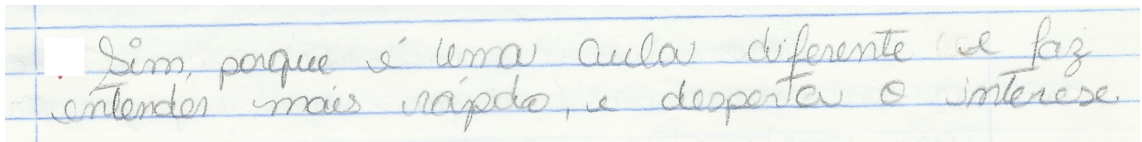 Sim, porque é uma aula diferente e faz
entender mais rápdo, e desperta o interese.